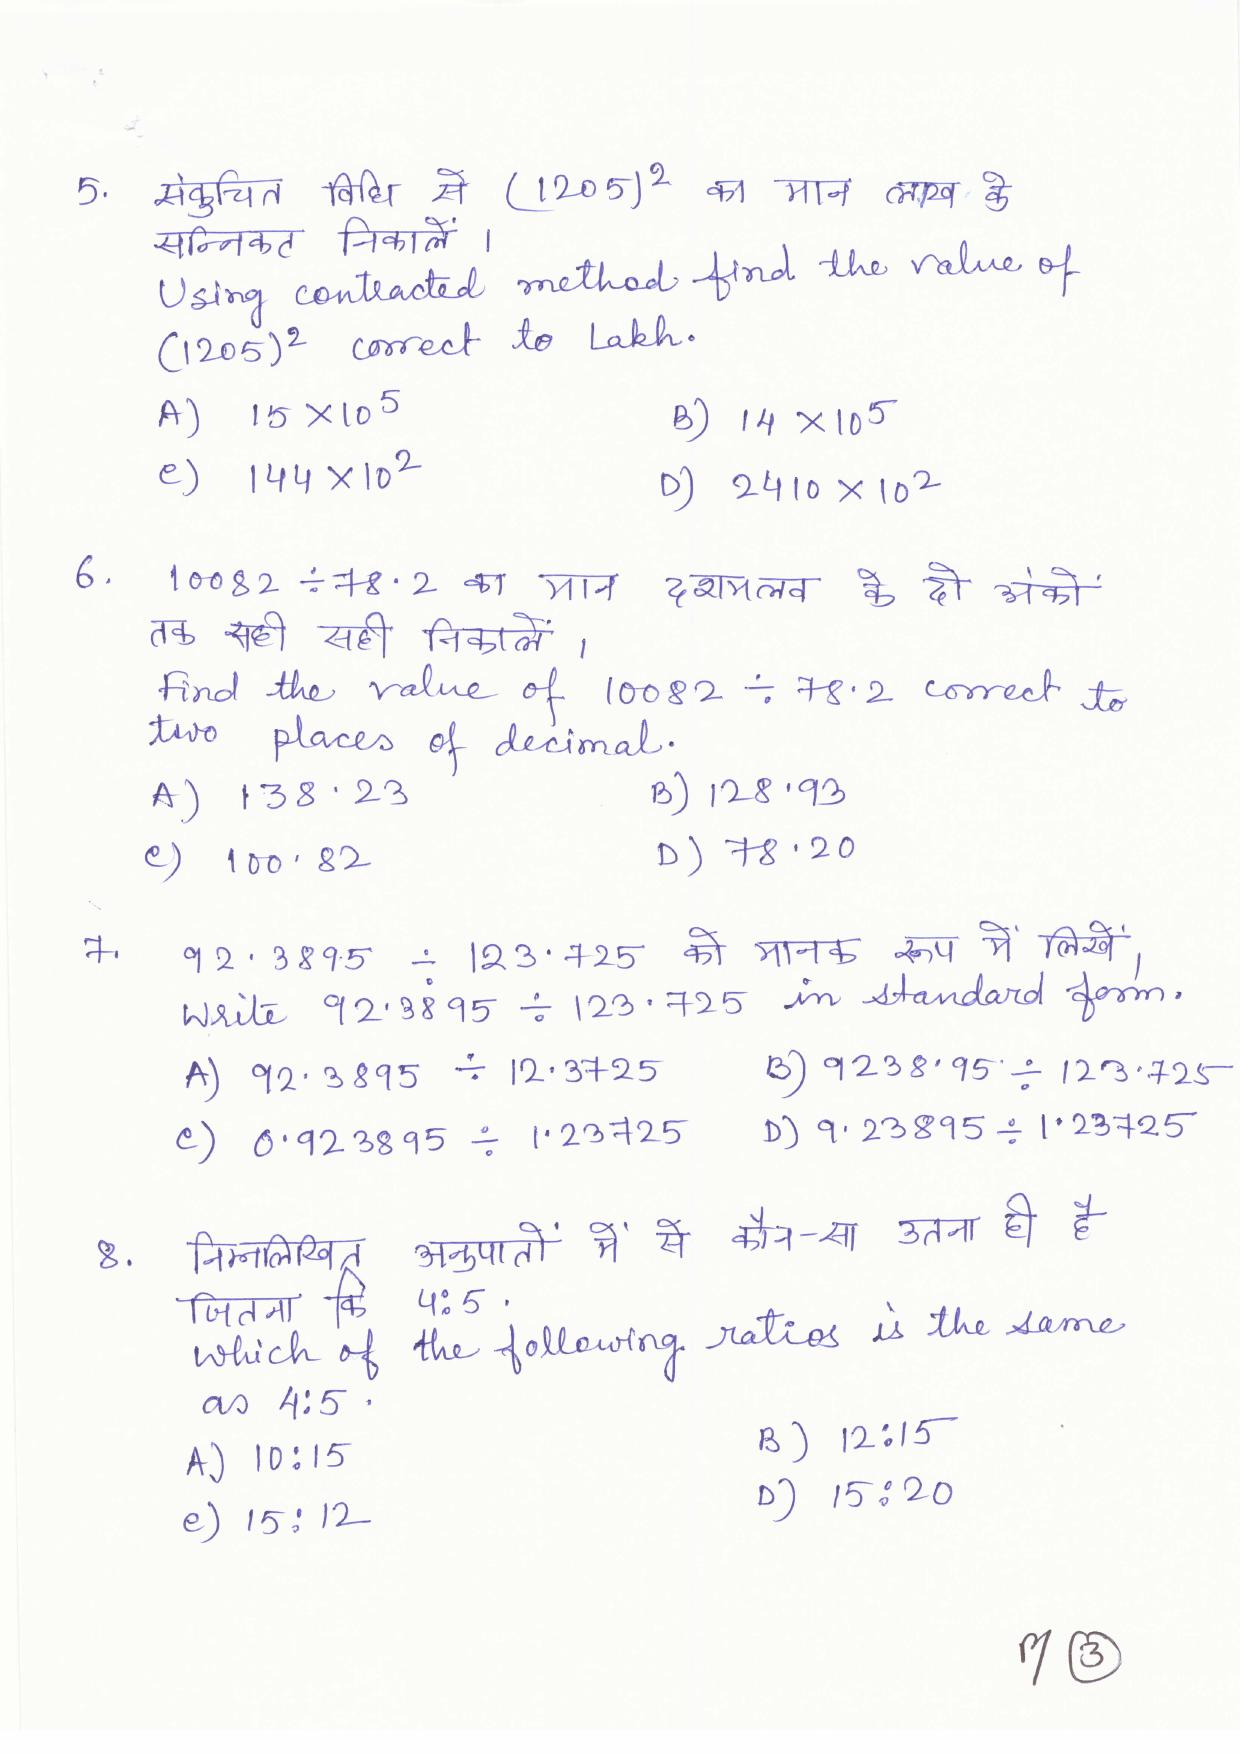 5. संकुचित विधि से (1205)² का मान लाख के
सन्निकट निकालें।
Using contracted method find the value of
(1205)² correct to Lakh.
A) 15 × 10⁵ B) 14 × 10⁵
C) 144 × 10² D) 2410 × 10²
6. 10082 ÷ 78.2 का मान दशमलव के दो अंकों
तक सही सही निकालें।
Find the value of 10082 ÷ 78.2 correct to
two places of decimal.
A) 138.23 B) 128.93
C) 100.82 D) 78.20
7. 92.3895 ÷ 123.725 को मानक रूप में लिखें,
Write 92.3895 ÷ 123.725 in standard form.
A) 92.3895 ÷ 12.3725 B) 9238.95 ÷ 123.725
C) 0.923895 ÷ 1.23725 D) 9.23895 ÷ 1.23725
8. निम्नलिखित अनुपातों में से कौन-सा उतना ही है
जितना कि 4:5.
Which of the following ratios is the same
as 4:5.
A) 10:15 B) 12:15
C) 15:12 D) 15:20
3